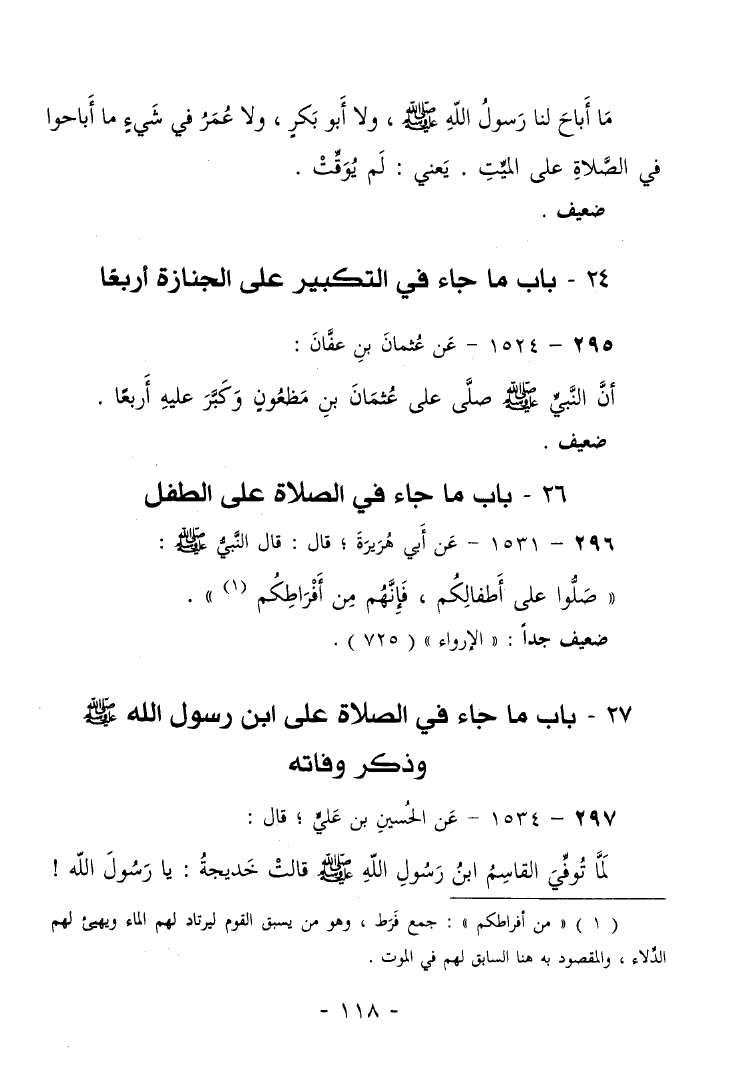 مَا أَباحَ لنا رَسولُ اللّهِ ﷺ ، ولا أَبو بَكرٍ ، ولا عُمَرُ في شَيءٍ ما أَباحوا
في الصَّلاةِ على الميِّتِ . يَعني : لَم يُوَقِّتْ .
ضعيف .
٢٤ - باب ما جاء في التكبير على الجنازة أربعًا
٢٩٥ – ١٥٢٤ – عَن عُثمانَ بنِ عفَّانَ :
أنَّ النَّبيَّ ﷺ صلَّى على عُثمَانَ بنِ مَظعُونٍ وَكَبَّرَ عليهِ أَربعًا .
ضعيف .
٢٦ - باب ما جاء في الصلاة على الطفل
٢٩٦ – ١٥٣١ – عَن أَبي هُرَيرَةَ ؛ قال : قال النَّبيُّ ﷺ :
« صَلُّوا على أَطفالِكُم ، فَإِنَّهُم مِن أَفْرَاطِكُم (١) » .
ضعيف جداً : « الإرواء » ( ٧٢٥ ) .
٢٧ - باب ما جاء في الصلاة على ابن رسول الله ﷺ
وذكر وفاته
٢٩٧ – ١٥٣٤ – عَن الحُسينِ بن عَليٍّ ؛ قال :
لَمَّا تُوفِّيَ القاسِمُ ابنُ رَسُولِ اللّهِ ﷺ قالتْ خَديجةُ : يا رَسُولَ اللّه !
( ١ ) « من أفراطكم » : جمع فَرَط ، وهو من يسبق القوم ليرتاد لهم الماء ويهيئ لهم
الدِّلاء ، والمقصود به هنا السابق لهم في الموت .
- ١١٨ -